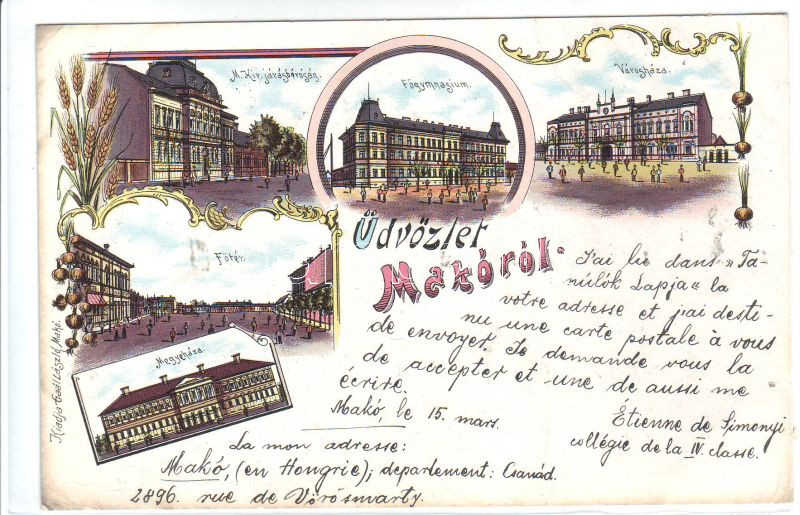 M. Kir. járásbíróság.
Főgymnasium.
Városháza.
Főtér.
Megyeháza.
Kiadja Gaál László, Makó.
Üdvözlet
Makóról.
J'ai lu dans „Ta-
núlók Lapja" la
votre adresse et j'ai desti-
nu une carte postale à vous
de envoyer. Je demande vous la
de accepter et une de aussi me
écrire.
Makó, le 15. mars.
Étienne de Simonyi
collégie de la IV. classe.
La mon adresse:
Makó, (en Hongrie); departement: Csanád.
2896. rue de Vörösmarty.